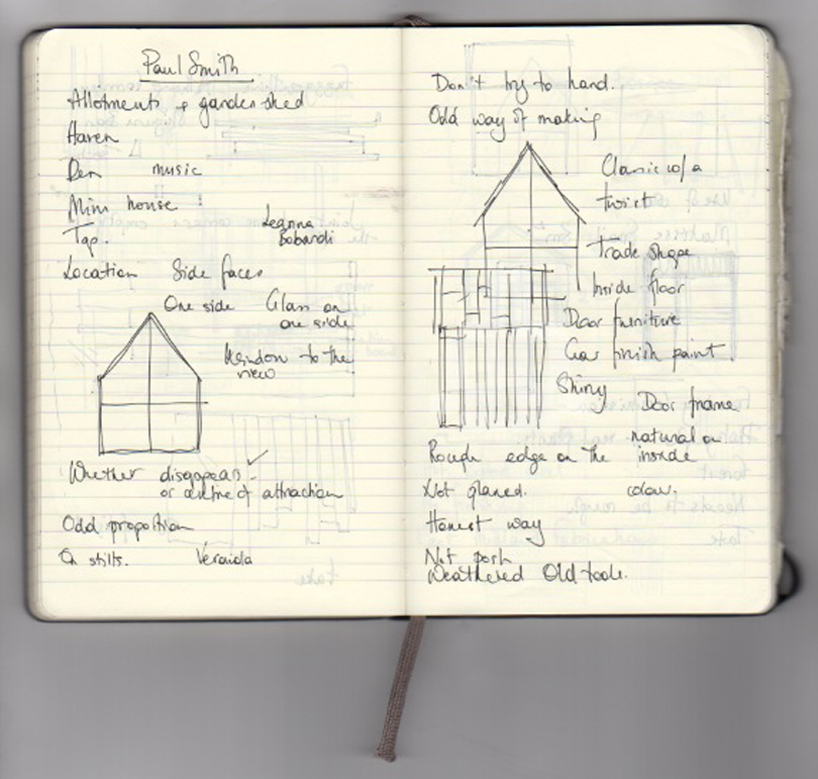 Paul Smith
Allotments & garden shed
Haven
Den music
Mini house
Tap.
Leanna
Bobardi
Location Side faces
One side Glass on
one side
Window to the
view
Whether disappears
or centre of attraction
Odd proportion
On stilts. Veranda
Don't try to hard.
Odd way of making
Classic w/ a
twist
Trade shape
Inside floor
Door furniture
Car finish paint.
Shiny
Door frame
natural on
Rough edge on the inside
Not planed. colour.
Honest way
Not posh
Weathered Old tools.